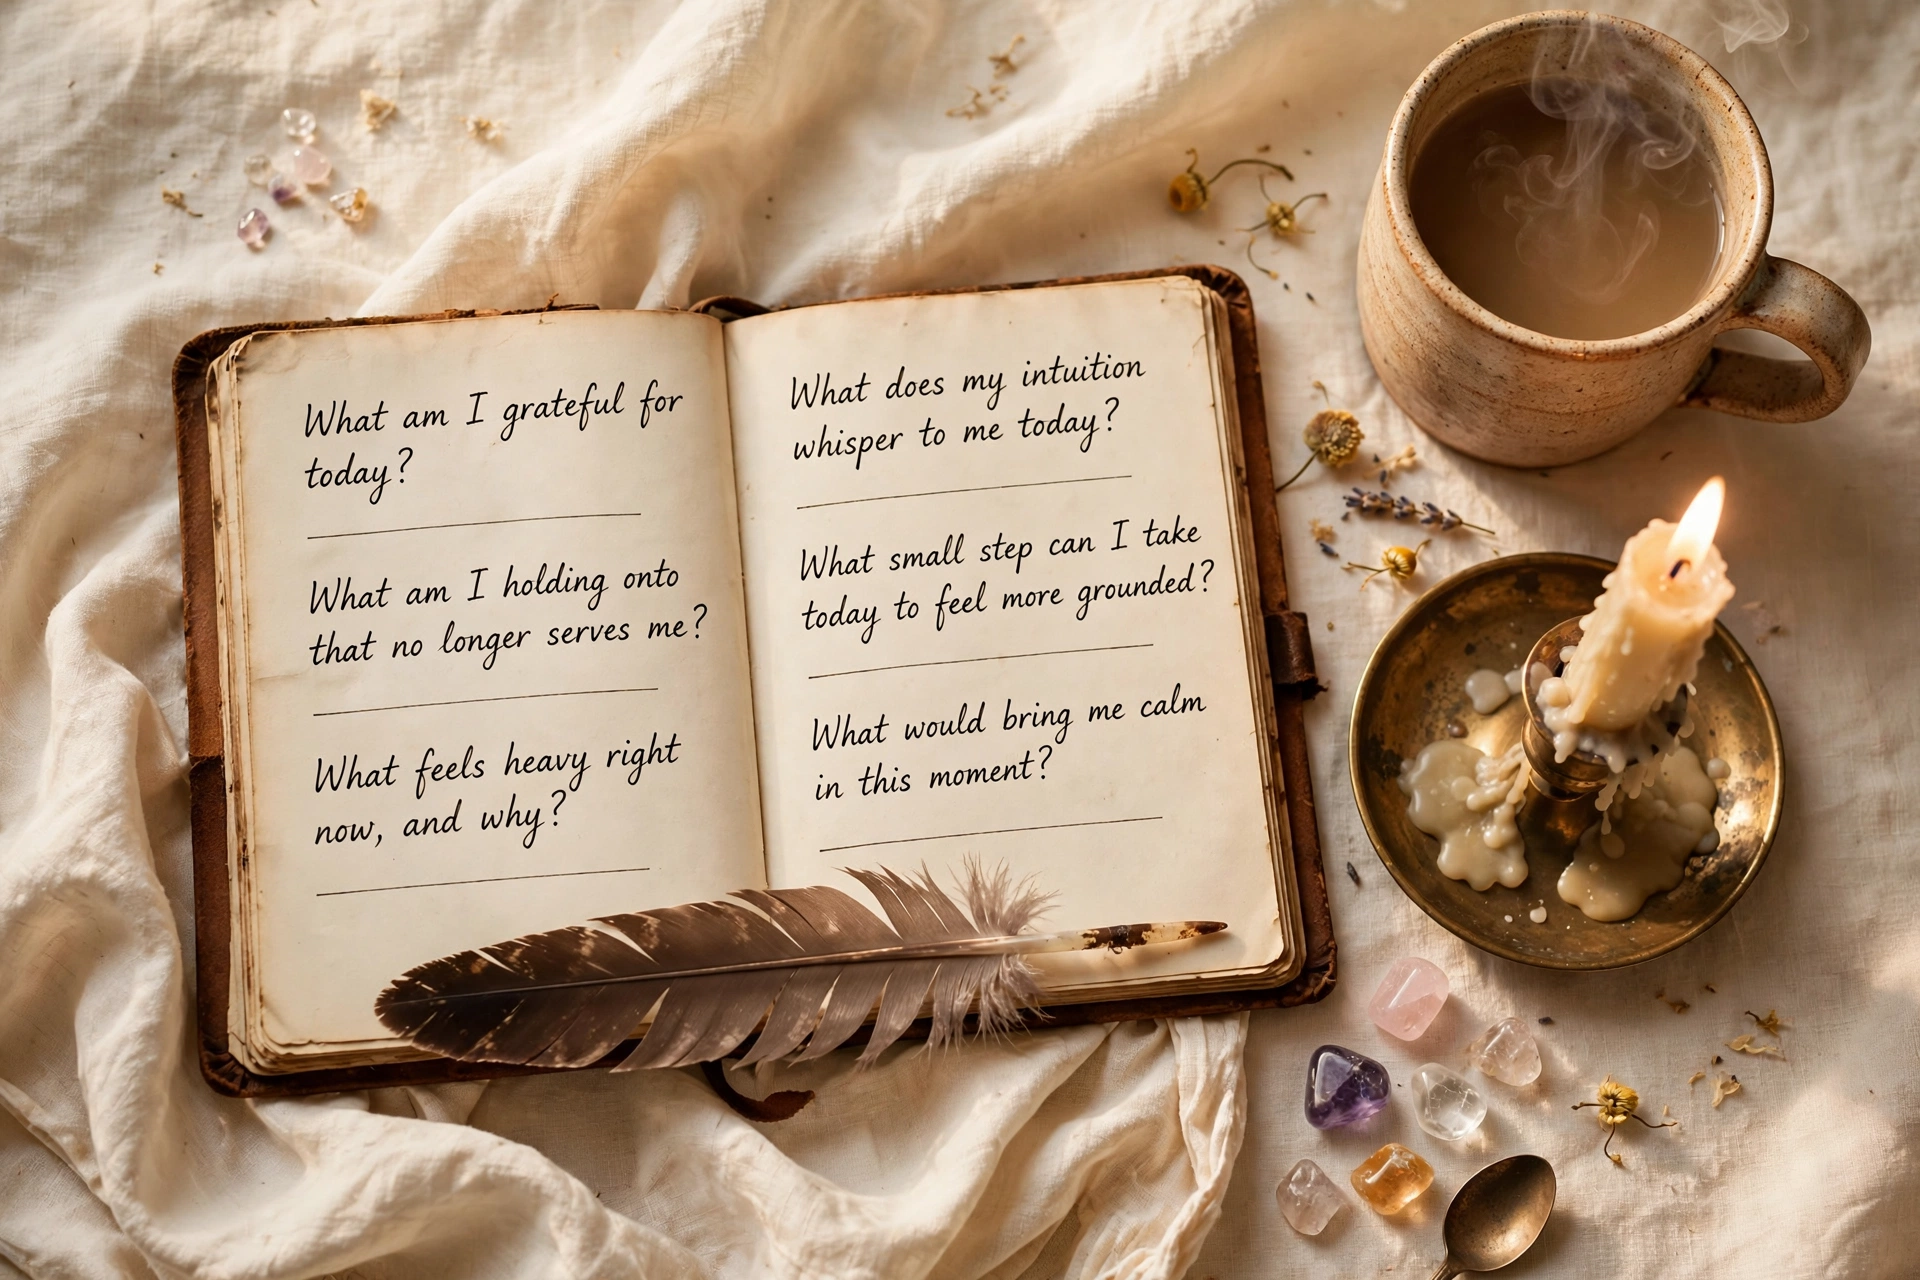 What am I grateful for
today?
What am I holding onto
that no longer serves me?
What feels heavy right
now, and why?
What does my intuition
whisper to me today?
What small step can I take
today to feel more grounded?
What would bring me calm
in this moment?